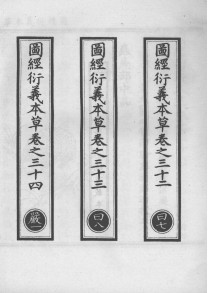 圖經衍義本草卷之三十二
曰七
圖經衍義本草卷之三十三
曰八
圖經衍義本草卷之三十四
嚴一